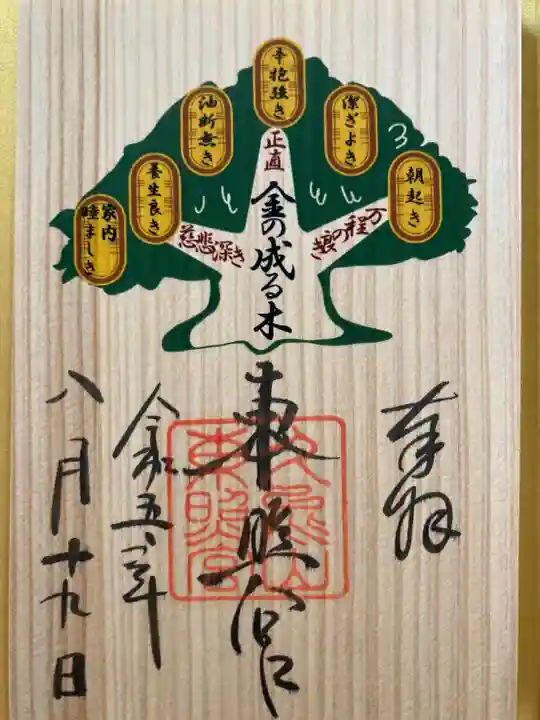 朝起き
潔ぎよき
辛抱強き
油断無き
養生良き
家内
睦ましき
万程の
正直
慈悲深き
金の成る木
奉拝
東照宮
令和五年
八月十九日